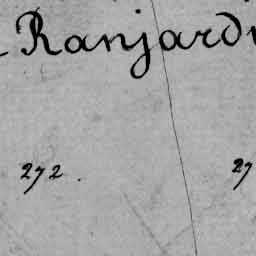 Ranjard
272. 27